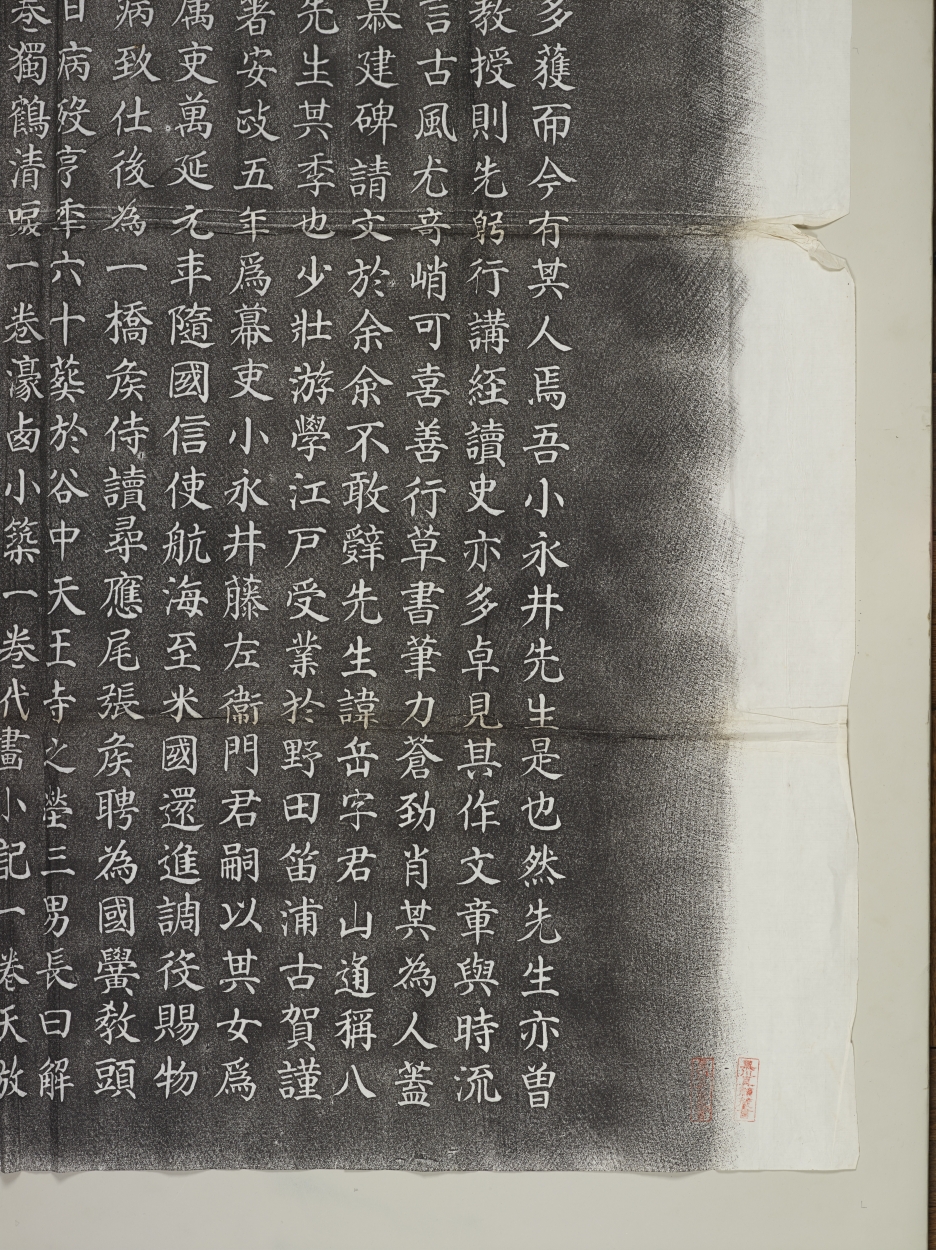 多獲而今有其人焉吾小永井先生是也然先生亦曽
教授則先躬行講経讀史亦多卓見其作文章與時流
言古風尤竒峭可喜善行草書筆力蒼勁肖其為人蓋
慕建碑請文於余余不敢辤先生諱岳字君山通稱八
先生其季也少壯游學江戸受業於野田笛浦古賀謹
著安政五年爲幕吏小永井藤左衞門君嗣以其女爲
属吏萬延元年隨國信使航海至米國還進調役賜物
病致仕後為一橋矦侍讀尋應尾張矦聘為國黌教頭
日病歿享年六十葬於谷中天王寺之塋三男長曰解
卷獨鶴清唳一卷濠鹵小築一卷代畵小記一卷天放